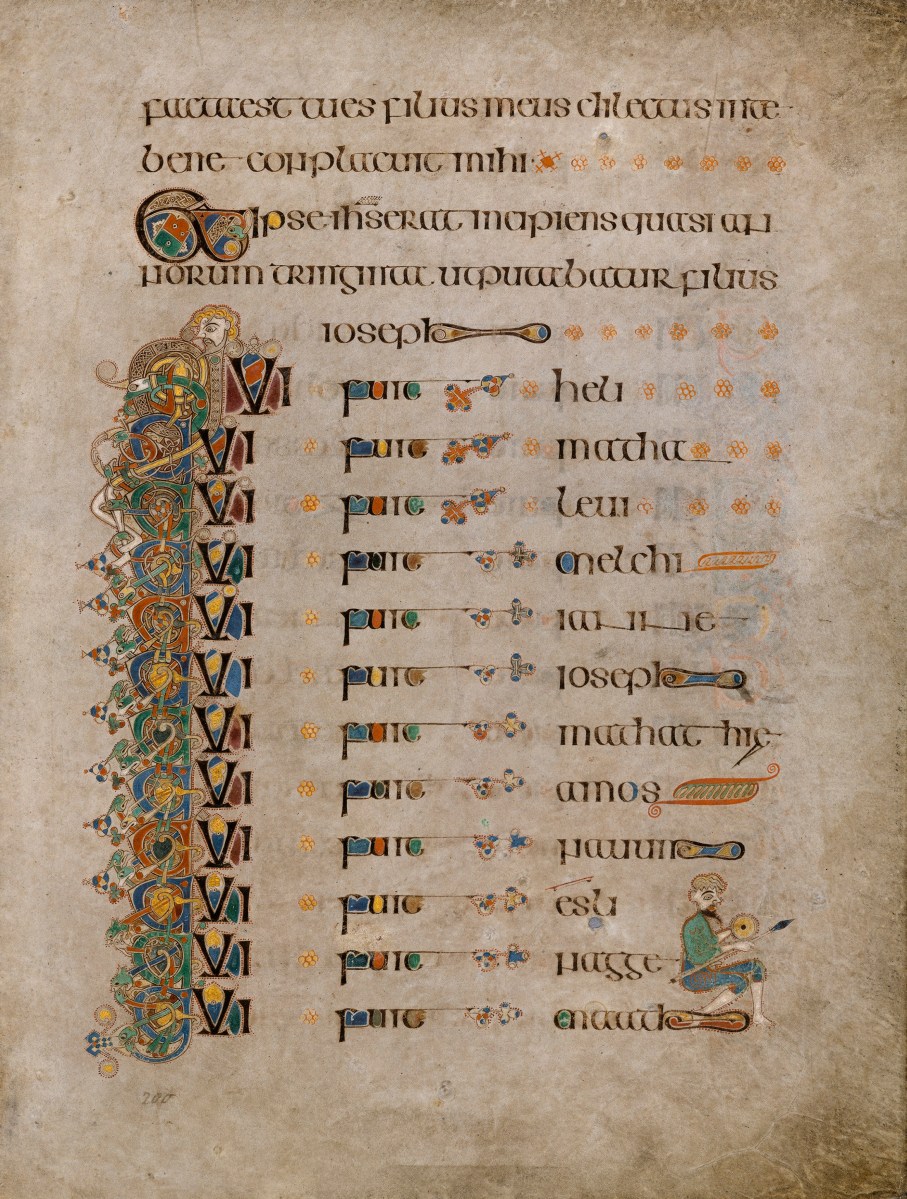 facta est tu es filius meus dilectus in te
bene conplacuit mihi
Et ipse ihs erat incipiens quasi an
norum triginta ut putabatur filius
ioseph
QVI fuit heli
QVI fuit matha
QVI fuit leui
QVI fuit melchi
QVI fuit ianne
QVI fuit ioseph
QVI fuit mathathię
QVI fuit amos
QVI fuit nauum
QVI fuit esli
QVI fuit nagge
QVI fuit maath
200